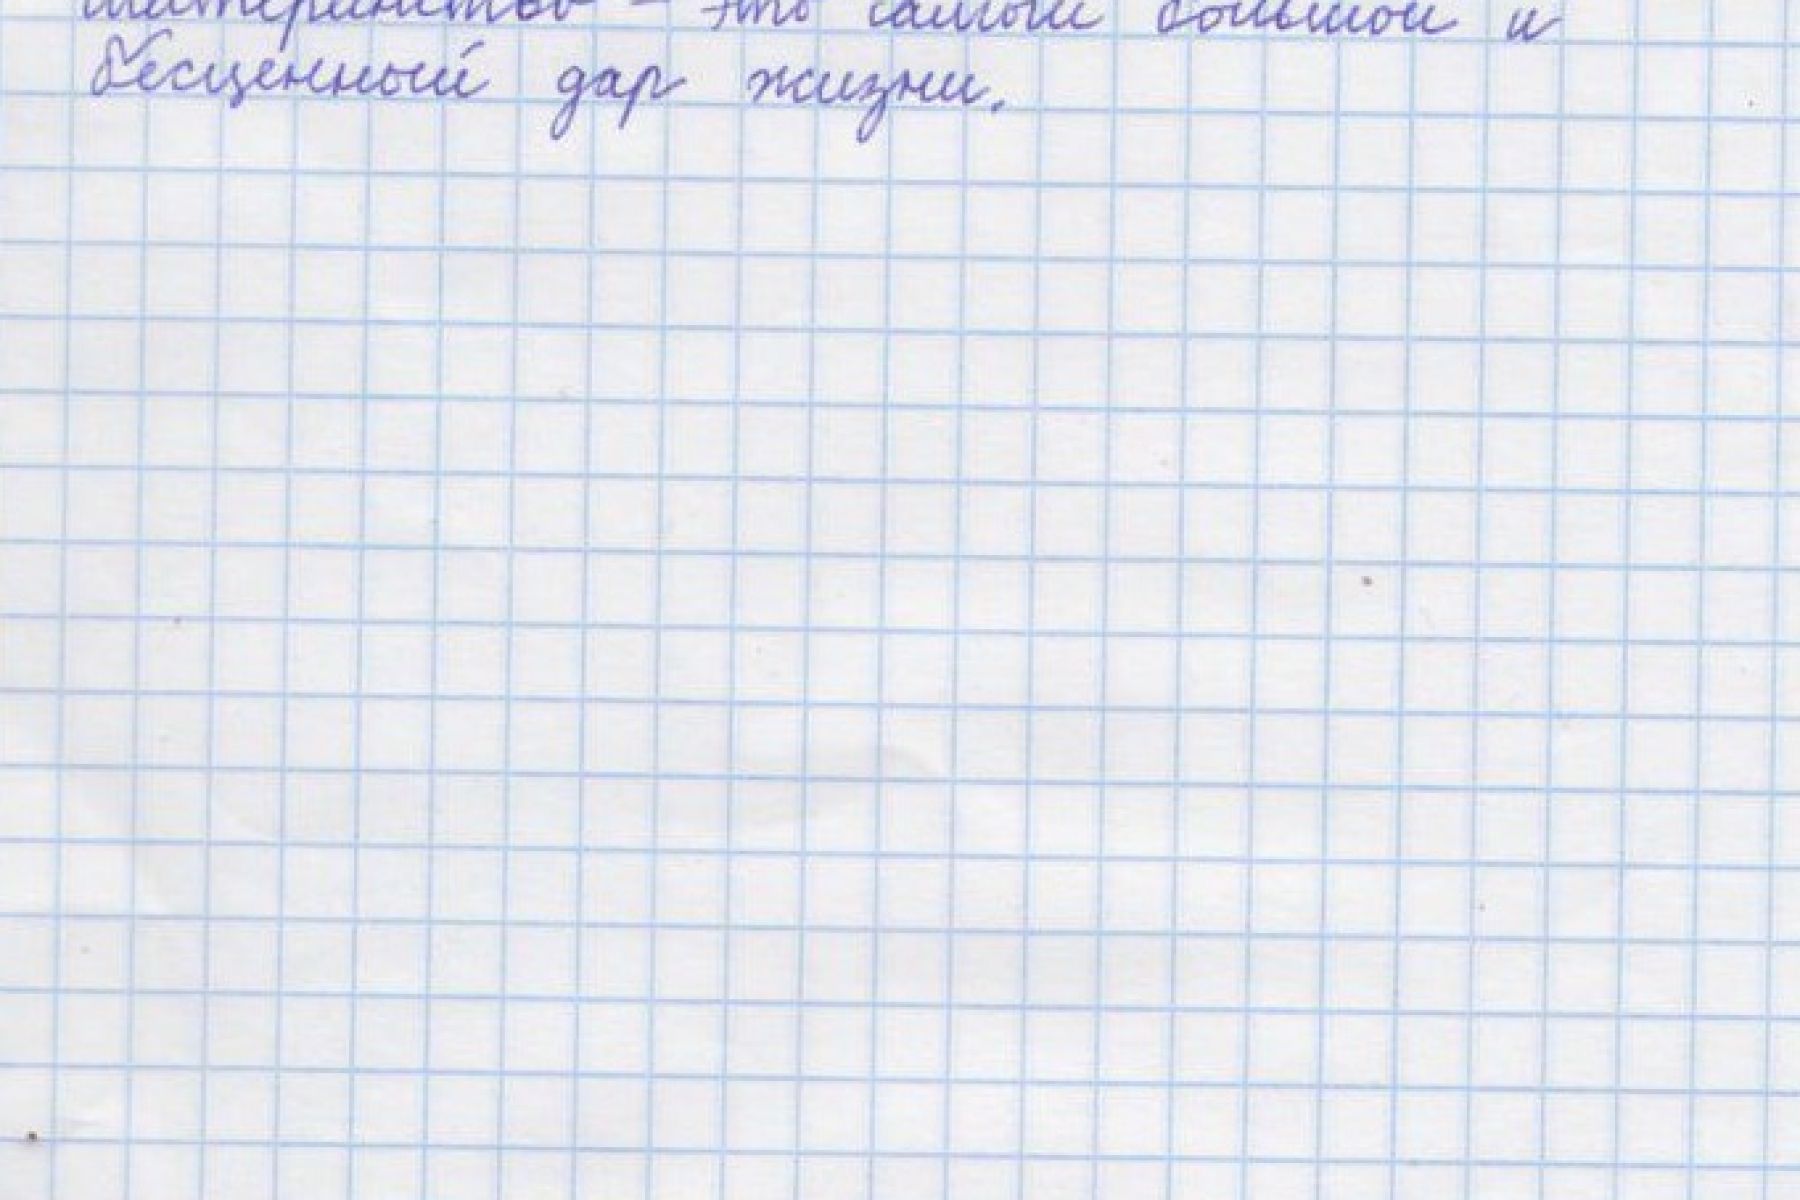 материнство - это самый большой и
бесценный дар жизни.